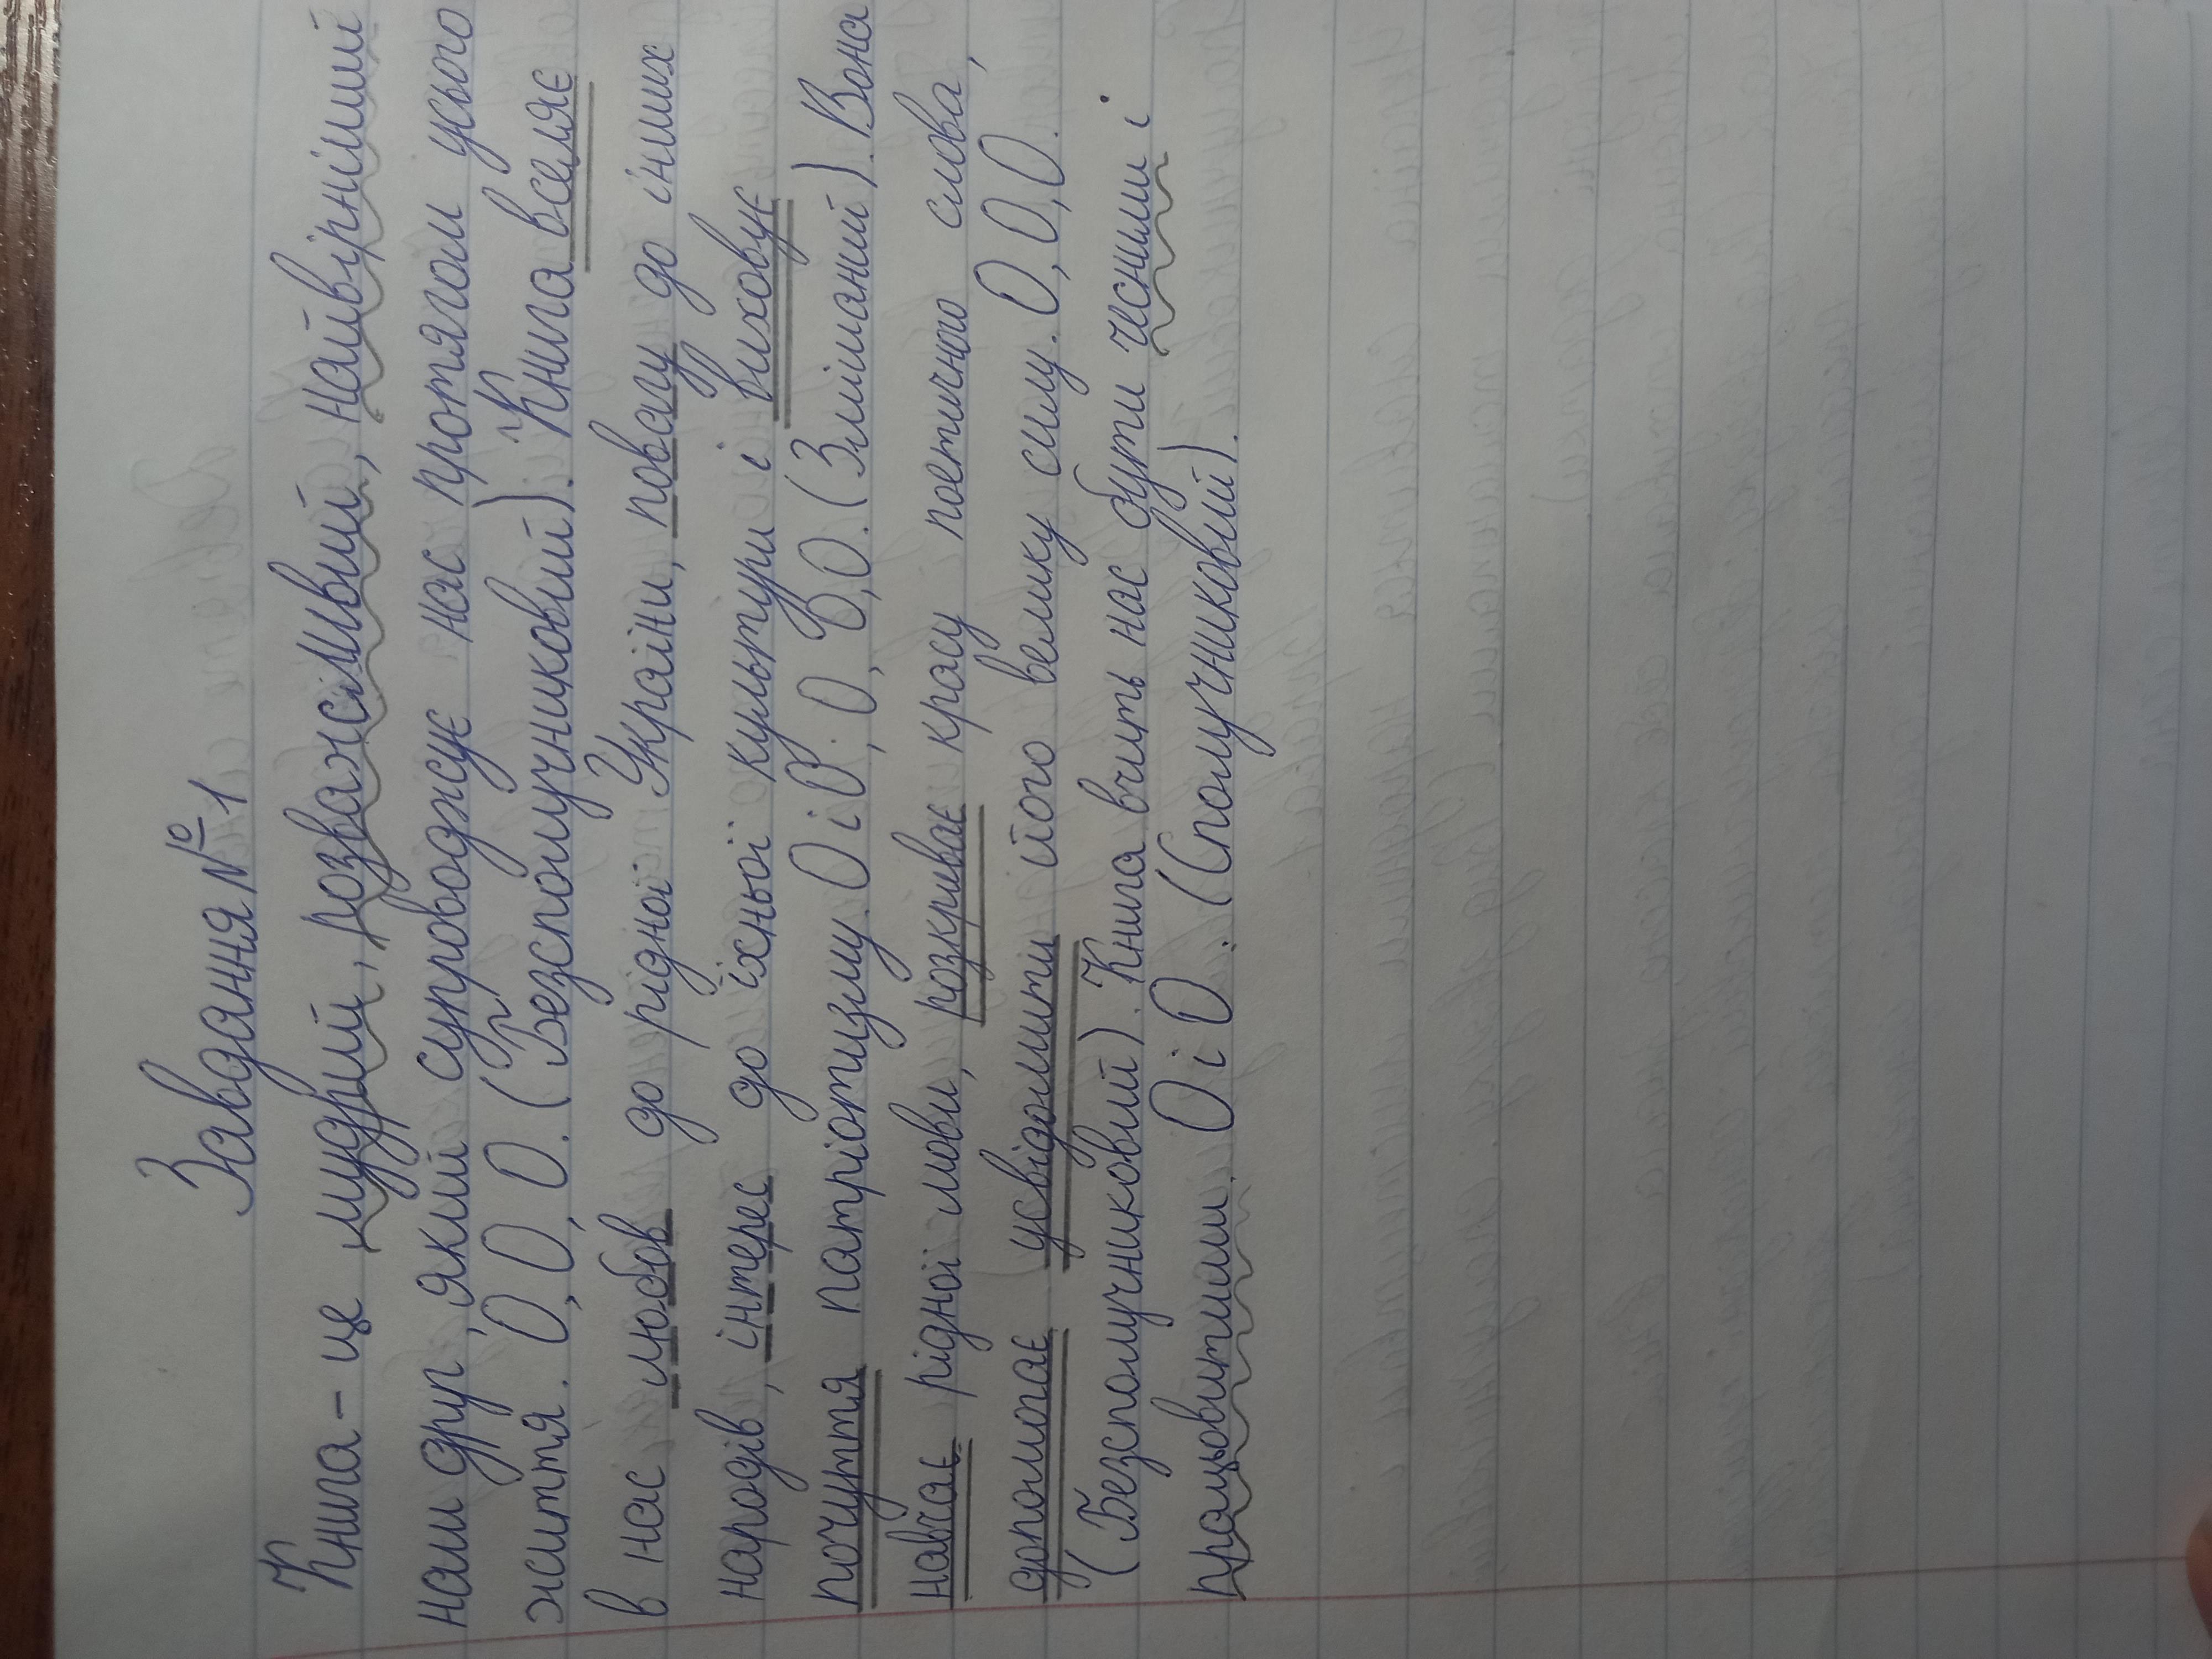 Завдання №1
Книга - це мудрий, розважливий, найвірніший
наш друг, який супроводжує нас протягом усього
життя. О, О, О. (Безсполучниковий). Книга вселяє
в нас любов до рідної України, повагу до інших
народів, інтерес до їхньої культури і виховує
почуття патріотизму. О і О. О, О, О, О. (Змішаний). Вона
навчає рідної мови, розкриває красу поетичного слова,
допомагає усвідомити його велику силу. О, О, О.
(Безсполучниковий). Книга вчить нас бути чесними і
працьовитими. О і О. (Сполучниковий).